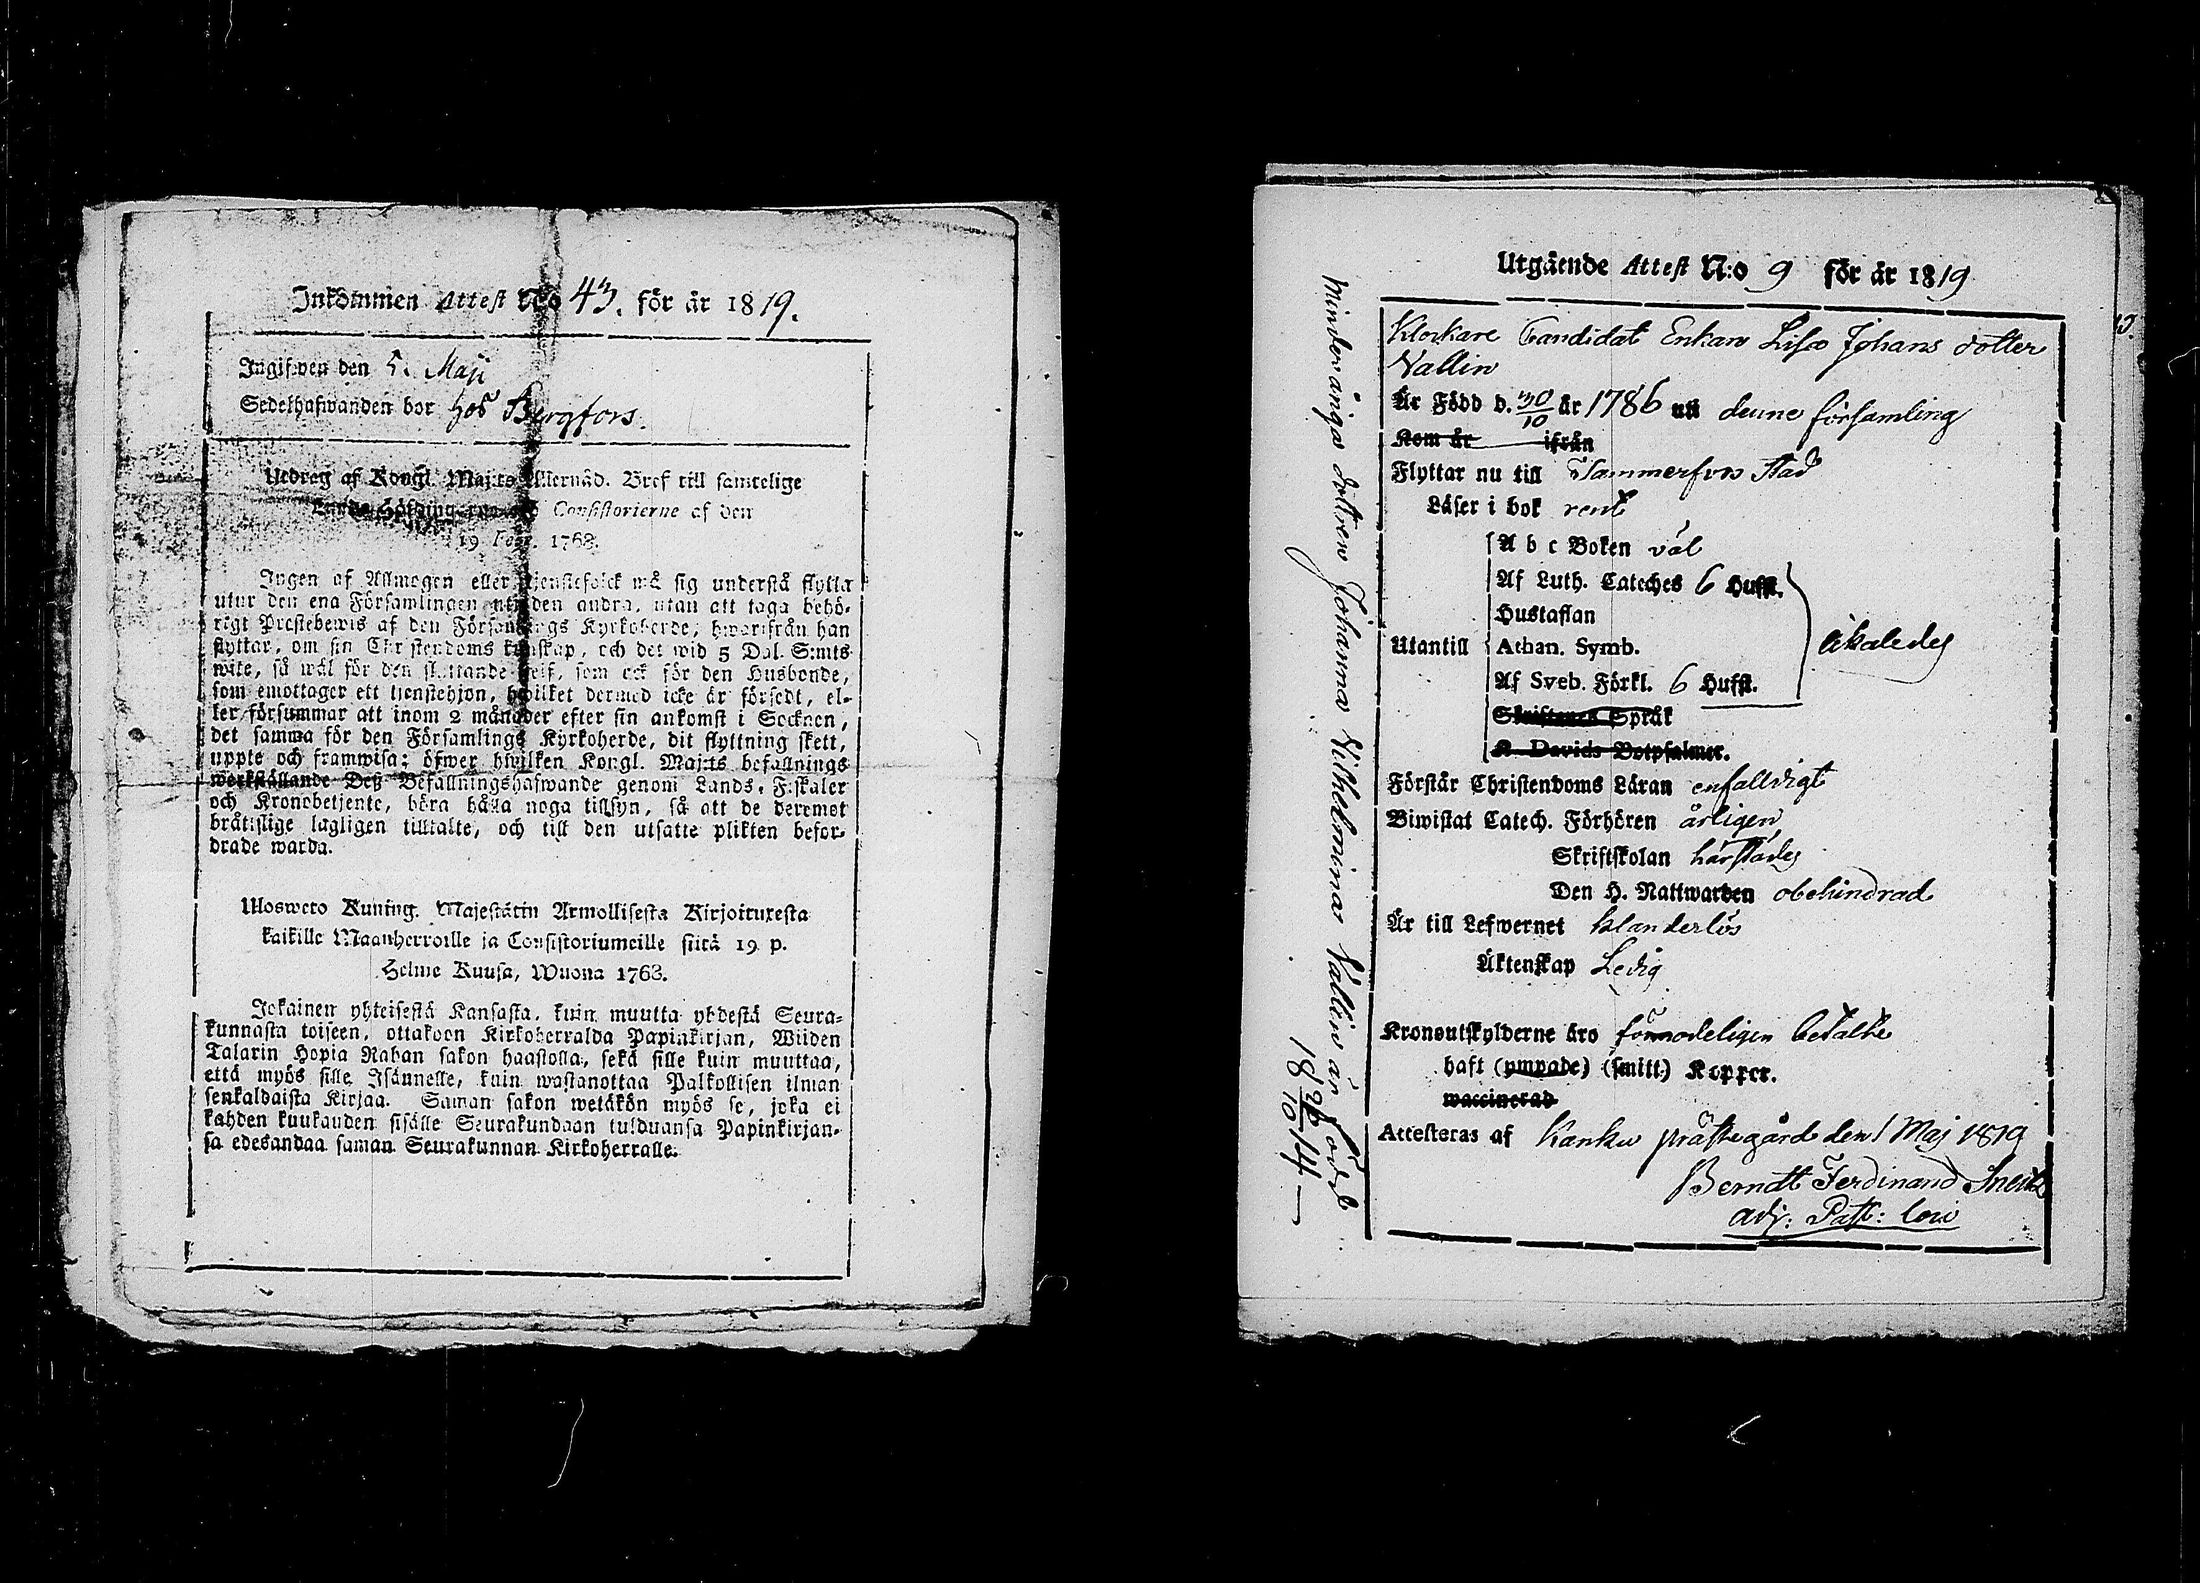 Inkommen Attest N:o 43. för år 1819.
Ingifwen den 5. Maji
Sedelhafwanden bor hos Bergfors.
Utdrag af Kongl. Maj:ts Allernåd. Bref till samtelige
Consistorierne af den
19 1763.
Ingen af Allmogen eller tjenstefolck må sig understå flytta
utur den ena Församlingen uti den andra, utan att taga behö-
rigt Prestebewis af den Församlings Kyrkoherde, hwarifrån han
flyttar, om sin Christendoms kunskap, och det wid 5 Dal. S:mts
wite, så wäl för den flyttande self, som ock för den Husbonde,
som emottager ett tjenstehjon, hwilket dermed icke är försedt, el-
ler försummar att inom 2 månader efter sin ankomst i Socknen,
det samma för den Församlings Kyrkoherde, dit flyttning skett,
uppte och framwisa; öfwer hwilken Kongl. Maj:ts befallnings
werkställande Deß Befallningshafwande genom Lands-Fiskaler
och Kronobetjente, böra hålla noga tillsyn, så att de deremot
bråtislige lagligen tilltalte, och till den utsatte plikten befor-
drade warda.
Ulosweto Kuning. Majestätin Armollisesta Kirjoituxesta
kaikille Maanherroille ja Consistoriumeille siitä 19 p.
Helme Kuusa, Wuona 1763.
Jokainen yhteisestä Kansasta, kuin muutta yhdestä Seura-
kunnasta toiseen, ottakoon Kirkoherralda Papinkirjan, Wiiden
Talarin Hopia Rahan sakon haastolla, sekä sille kuin muuttaa,
että myös sille Isännelle, kuin wastanottaa Palkollisen ilman
senkaldaista Kirjaa. Saman sakon wetäkön myös se, joka ei
kahden kuukauden sisälle Seurakundaan tulduansa Papinkirjan-
sa edesandaa saman Seurakunnan Kirkoherralle.
Utgående Attest N:o 9 för år 1819
Klockare Candidat Enkan Lisa Johans dotter
Vallin
Är Född d. 30/10 år 1786 uti denne församling
Kom år ifrån
Flyttar nu till Tammerfors stad
Läser i bok rent
A b c Boken väl
Af Luth. Cateches 6 Hufst.
Hustaflan
Utantill Athan. Symb. likaledes
Af Sveb. Förkl. 6 Hufst.
Skriftenes Språk
K. Davids Botpsalmer.
Förstår Christendoms Läran enfalldigt
Biwistat Catech. Förhören årligen
Skriftskolan härstädes
Den H. Nattwarden obehindrad
Är till Lefwernet klanderlös
Äktenskap Ledig
Kronoutskylderne äro förmodeligen betalte
haft (ympade) (smitt) Koppor.
waccinerad
Attesteras af Kanku prästegård den 1 Maj 1819
Berndt Ferdinand
adj: Past: loci
Minderåriga dottren Johanna Vilhelmina Vallin är född
18 26/10 14